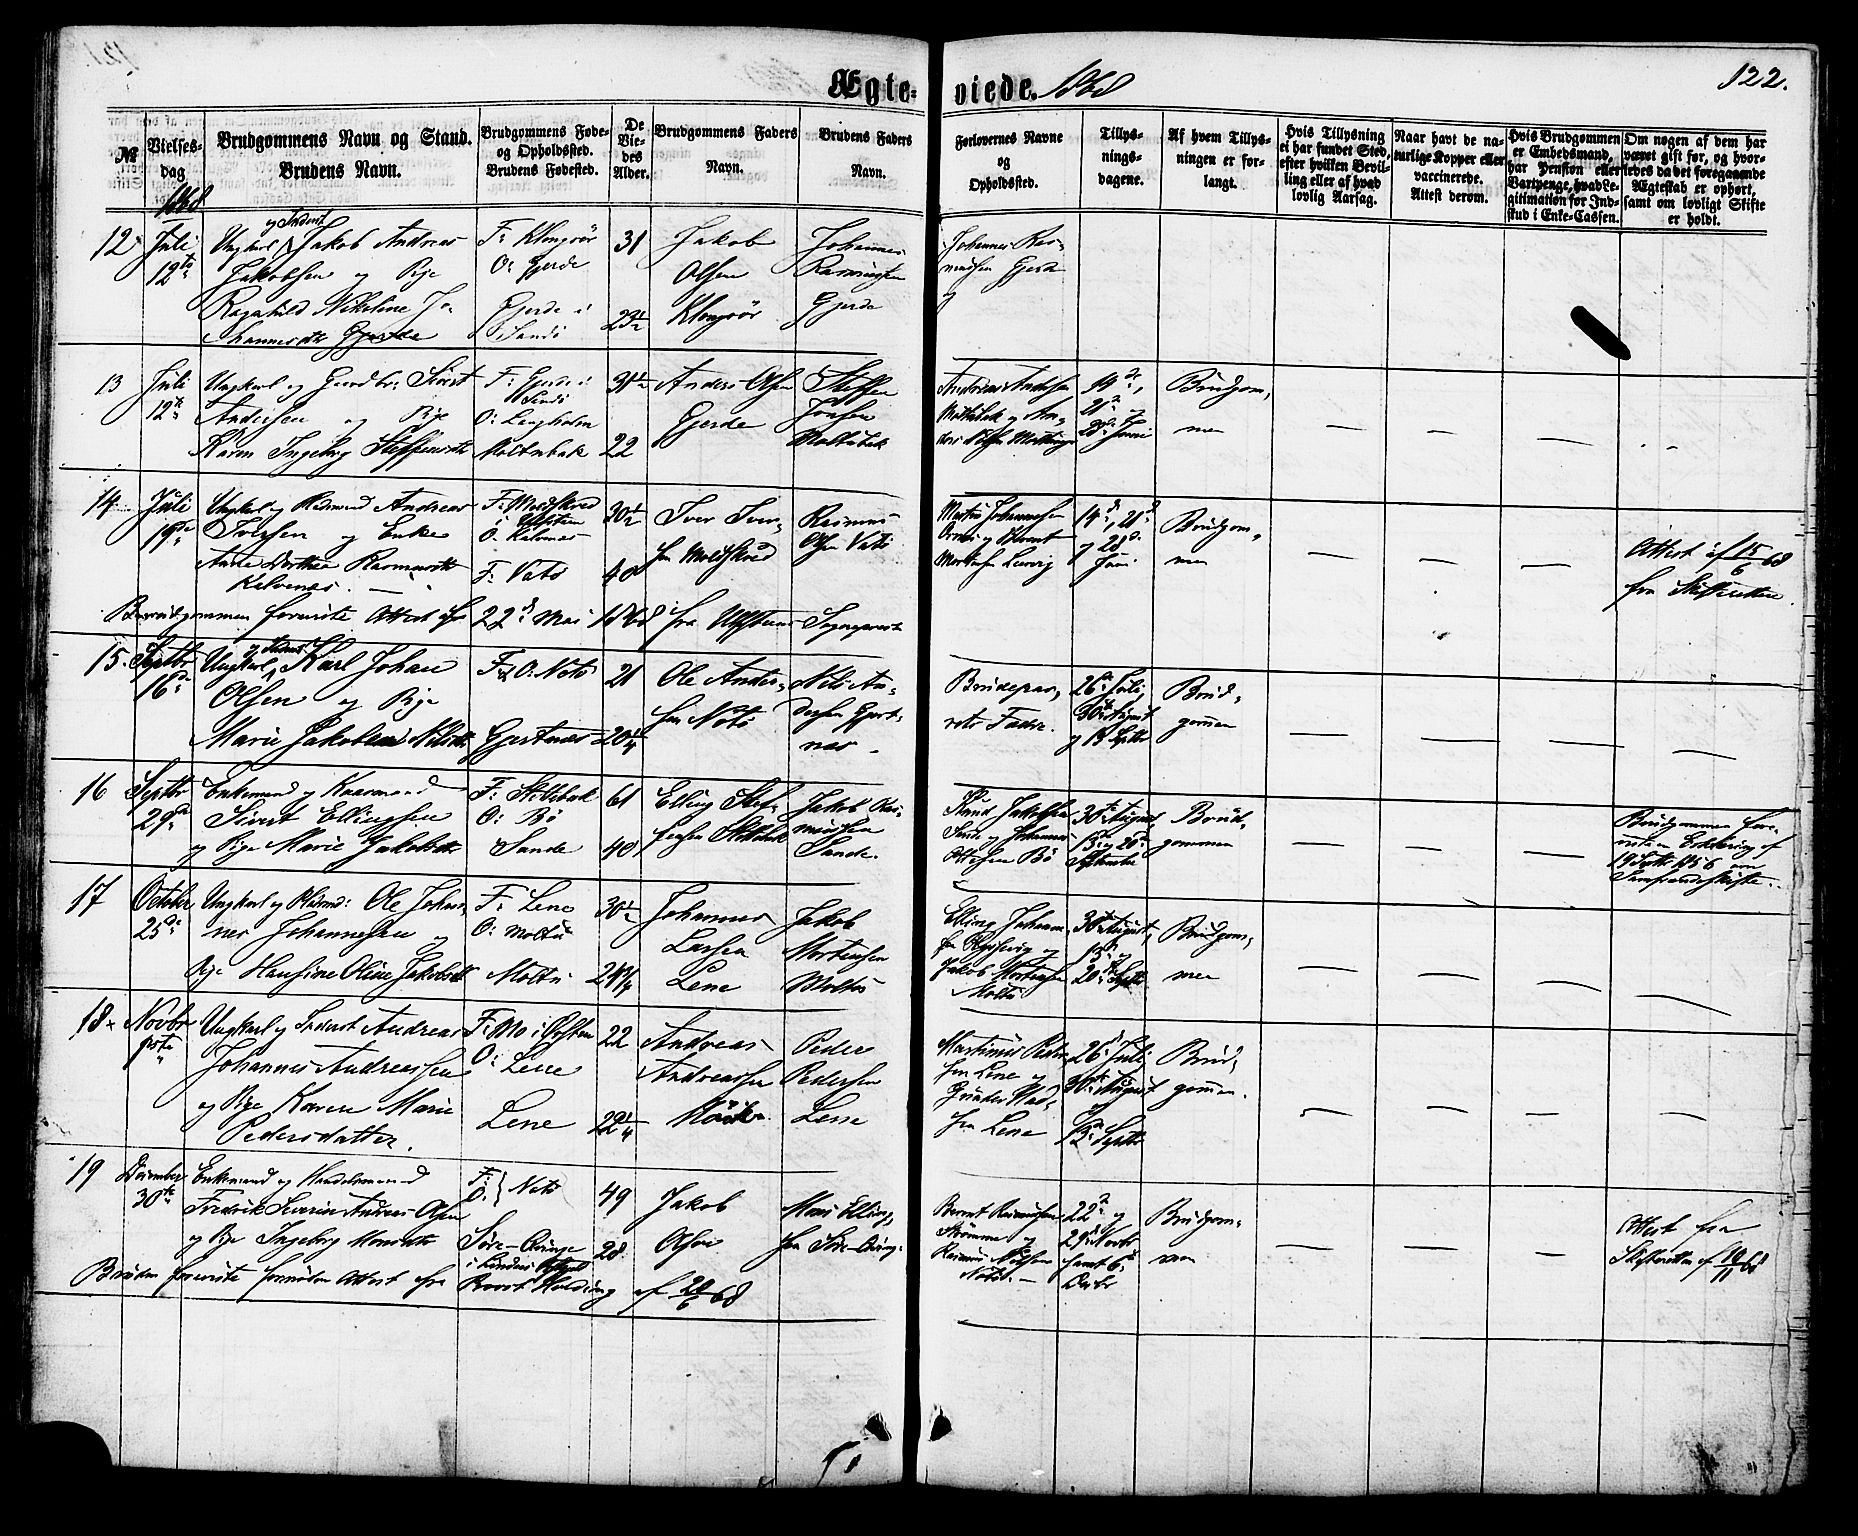 Ægte-viede. 1868
122.
№
Vielses-dag
Brudgommens Navn og Stand.
Brudens Navn.
Brudgommens Føde- og Opholdssted.
Brudens Fødested.
De Viedes Alder.
Brudgommens Faders Navn.
Brudens Faders Navn.
Forlovernes Navne og Opholdssted.
Tillysningsdagene.
Af hvem Tillysningen er forlangt.
Hvis Tillysning ei har fundet Sted, efter hvilken Bevilling eller af hvad lovlig Aarsag.
Naar havt de naturlige Kopper eller vaccinerede. Attest derom.
Hvis Brudgommen er Embedsmand, har Pension eller Vartpenge, hvad Legitimation for Indskud i Enke-Cassen.
Om nogen af dem har været gift før, og hvorledes da det foregaaende Ægteskab er ophørt, samt om lovligt Skifte er holdt.
1868
12 Juli 12te
Ungkarl og Inderst Jakob Andreas
Jakobsen og Pige
Ragnhild Nikoline Jo-
hannesdtr Gjerde
F: Klungrør
O: Gjerde
Gjerde i Sandø
31
23½
Jakob Olsen Klungrør
Johannes Rasmussen Gjerde
Johannes Rasmussen Gjerde
og
13 Juli 12te
Ungkarl og Gaardbr: Sivert
Andersen og Pige
Karen Ingeborg Steffensdtr
F: Gjerde i Sandø
O:
Moltubak
31½
22
Anders Olsen Gjerde
Steffen Jonsen Moltubak
Andreas Andersen Moltubak og
14de, 21de og 28de Juni
Brudgommen
14 Juli 19de
Ungkarl og Andreas
Iversen og Enke
Ane Dorthea Rasmusdtr
F: Moldskred
O:
F: Vatø
30½
40
Iver Iversen Moldskred
Rasmus Olsen Vatø
Martin Johannesen
og Bernt
14de, 21de og 28de Juni
Brudgommen
Attest af 15/6 68
fra Skifteretten
Brudgommen foreviste Attest af 22de Mai 1868 fra Sognepræst
15. Septbr 16de
Ungkarl og Inderst Karl Johan
Olsen og Pige
Marie Jakobea Nilsdtr
F. & O: Notø
Gjertnes
21
20¼
Ole Andersen Notø
Nils Andersen Gjertnes.
Brudeparrets Fædre.
26de Juli, 30te August og 13de Septbr
Brudgommen
16 Septbr 29de
Enkemand og Kaarmand
Sivert Ellingsen
og Pige Marie Jakobsdtr
F: Stilsbak
O: Bø
Sande
61
40
Elling Steffensen
Jakob Rasmussen Sande.
Knud Jakobsen Sande og Johannes Ottesen Bø
30te August, 13de og 20de September
Brudgommen
Brudgommen foreviste en Erklæring af
19 Septbr 1856 om
Samfrændeskifte.
17 October 25de
Ungkarl og Ole Johan-
nes Johannesen og
Pige Hansine Oline Jakobsdtr
F: Lene
O: Moltu
Moltu
30½
24¼
Johannes Larsen Lene
Jakob Mortensen Moltu
Elling Johannesen og
Jakob Mortensen Moltu
30te August, 13de og 20de Septbr
Brudgommen
18 Novbr 1ste
Ungkarl og Inderst Andreas
Johannes Andreassen
og Pige Karen Marie
Pedersdatter.
F: Mo i Ørsten
O: Lene
Lene
22
22¼
Andreas Andreassen
Peder Pedersen Lene
Martinus Pedersen Lene og
Lene
26de Juli 30te August og 13de Septbr
Brudgommen.
19 December 30te
Enkemand og Handelsmand
Fredrik Severin Andreas Olsen
og Pige Ingeborg Monsdtr
F: O: Notø
Søre-Qvinge
49
28
Jakob Olsen
Mons Ellingsen Søre-Qvinge
Bernt Rasmussen Strømme og
Rasmus Nilsen Notø.
22de og 29de Novbr samt 6te Decbr
Brudgommen
Attest fra
Skifteretten af 10/11 68
Bruden foreviste fornøden Attest fra af 20/6 68